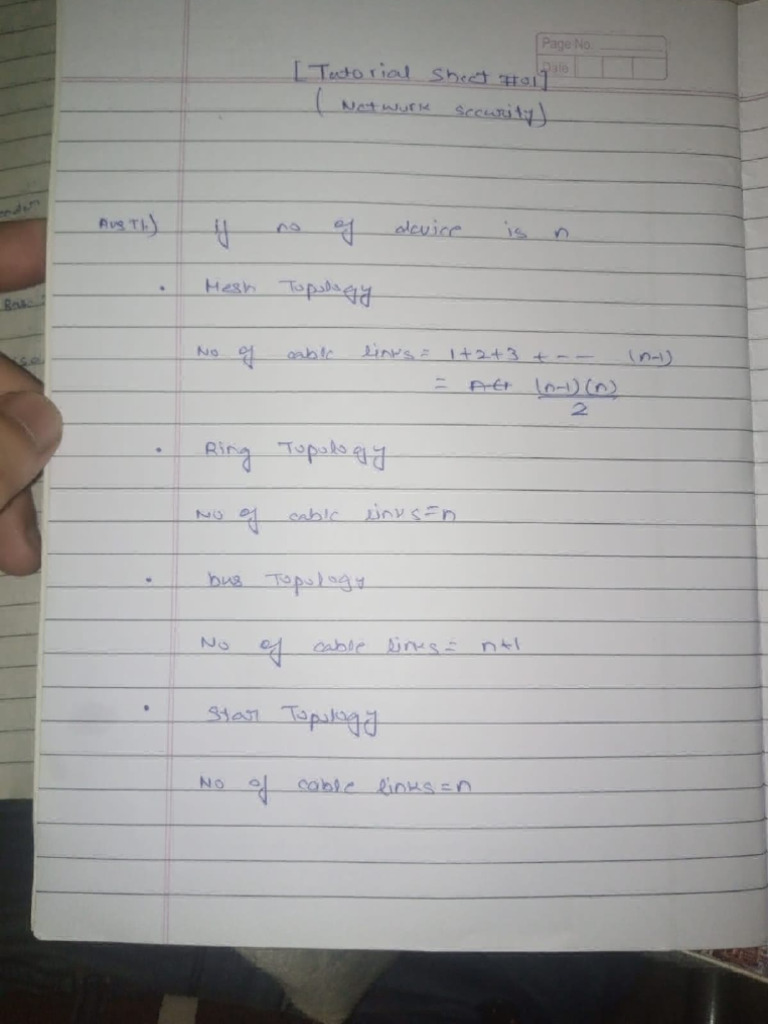 Page No.
Date
[Tutorial Sheet #01]
(Network security)
Ans Th.) if no of device is n
• Mesh Topology
No of cable links = 1+2+3 + --- (n-1)
= (n-1)(n)
2
• Ring Topology
No of cable links = n
• bus Topology
No of cable links = n+1
• Star Topology
No of cable links = n